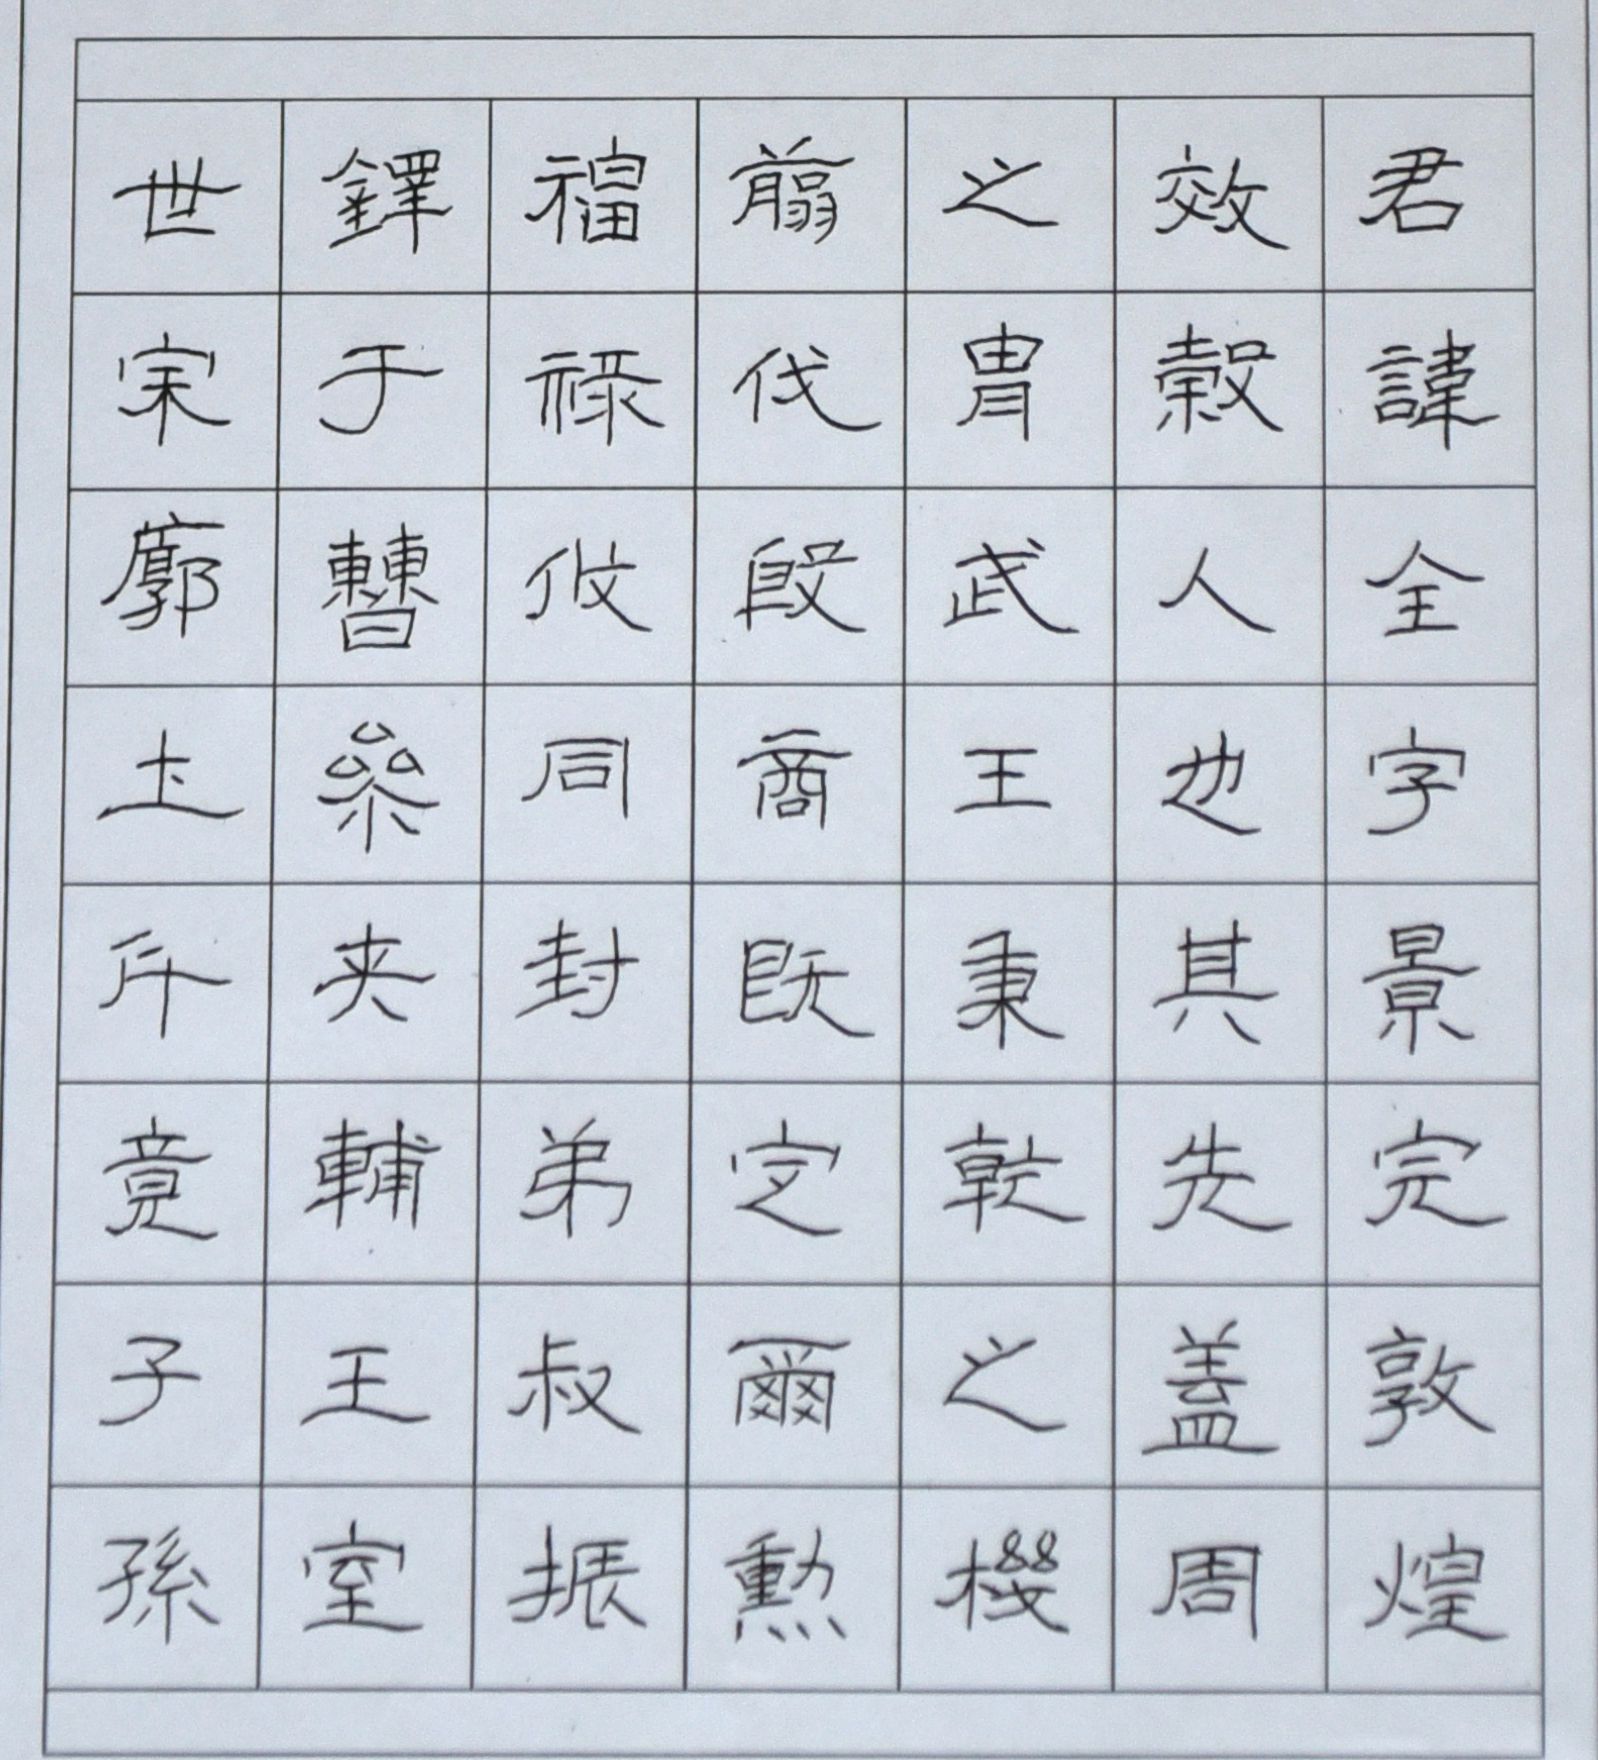 君諱全字景完敦煌
效穀人也其先蓋周
之胄武王秉乾之機
翦伐殷商既定爾勳
福祿攸同封弟叔振
鐸于曹叅夾輔王室
世宗廓土斥竟子孫